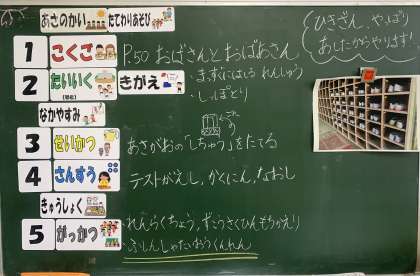 あさのかい たてわりあそび
1 こくご P.50 おばさんとおばあさん
2 たいいく きがえ ・まっすぐにはしる れんしゅう
・しっぽとり
なかやすみ
3 せいかつ あさがおの「しちゅう」をたてる
4 さんすう テストがえし、かくにん、なおし
きゅうしょく
5 がっかつ れんらくちょう、ずこうさくひんもちかえり
ふしんしゃたいおうくんれん
ひきざん、やっぱり
あしたからやります!